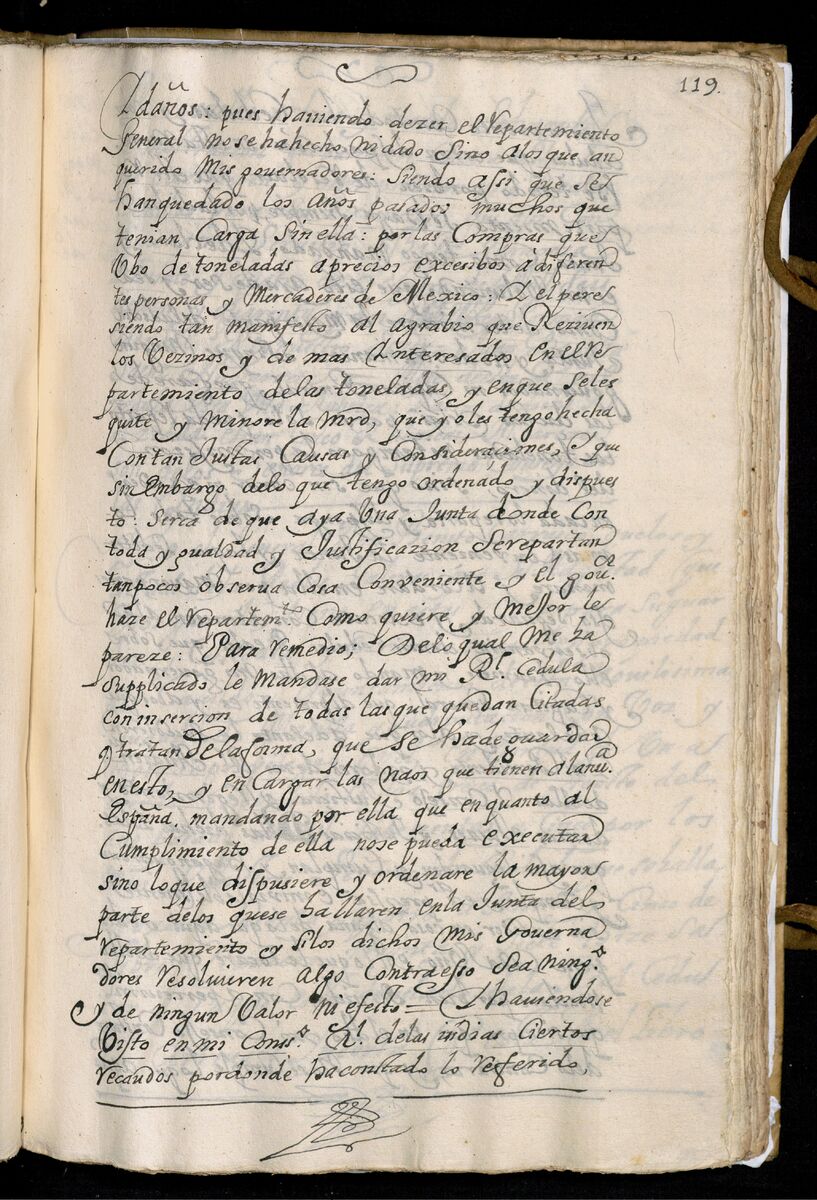 119.
Y daños: pues haviendo dezer el repartemiento
General nosehahecho nidado Sino alosque an
querido Mis governadores: Siendo assi que Se
hanquedado los años pasados muchos que
tenian Carga Sinella: porlas Compras que
Vbo de toneladas a precios excesibos a diferen
tes personas y Mercaderes de Mexico:
siendo tan manifesto al agrabio que Reziven
los Vezinos y de mas Interesados en el Re
partemiento delas toneladas, y enque Seles
quite y Minore la mrd, que yo les tengo hecha
Contan Justas Causas y Consideraciones, Y que
sin Embargo delo que tengo ordenado y dispues
to: Serca de que aya Vna Junta donde Con
toda ygualdad y Justificazion Serepartan
tanpocos observa Cosa Conveniente y El gou.or
haze el repartem.to Como quiere y Mejor le
pareze: Para remedio; Delo qual Me ha
supplicado le Mandase dar mi R.l Cedula
con insercion de todas lasque quedan Citadas
y tratan Delaforma, que Se hade guardar
en esto, y en Cargar las naos que tienen alanu.a
España. mandando por ella que en quanto al
Cumplimiento de ella nose pueda executar
sino loque dispusiere y ordenare la mayor
parte delos quese hallaren enla Junta del
repartemiento y silos dichos Mis Governa
dores resolvieren algo Contraesso Sea ning.o
y de ningun Valor ni efecto = Y haviendose
Visto en mi Conss.o R.l delas indias Ciertos
recaudos pordonde haconstado lo refferido,